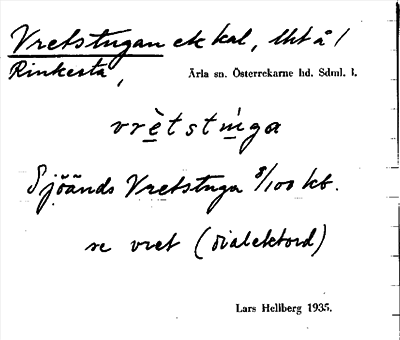 Vretstugan ek kal, lht å /
Rinkesta,
Ärla sn. Österrekarne hd. Sdml. l.
vrètstínga
Sjöänds Vretstuga 8/100 kb.
se vret (dialektord)
Lars Hellberg 1935.